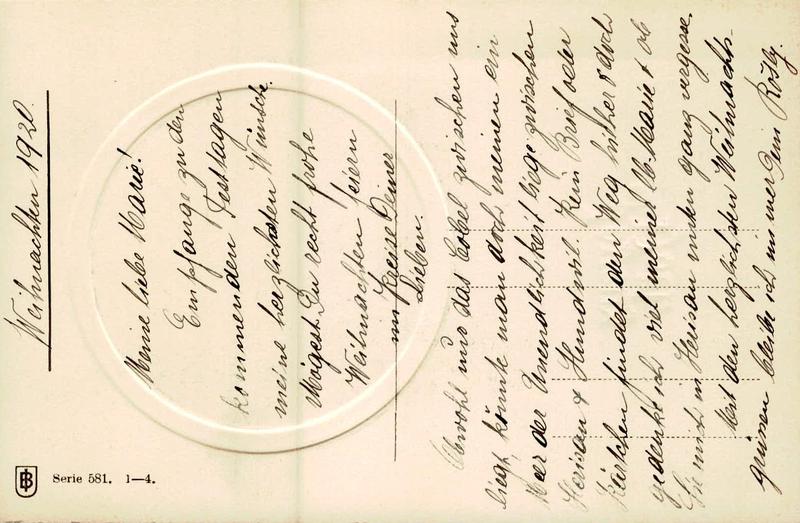 Weihnachten 1920.
Meine liebe Marie!
Empfange zu den
kommenden Festtagen
meine herzlichsten Wünsche.
Mögest Du recht frohe
Weihnachten feiern
im Kreise Deiner
Lieben.
Obwohl nur das Tobel zwischen uns
liegt könnte man doch meinen ein
Meer der Unendlichkeit liege zwischen
Herisau & Hundwil. Kein Brief oder
Kärtchen findet den Weg hither & doch
gedenke ich viel meiner lb. Marie & ob
Sie mich in Herisau unten ganz vergesse.
Mit den herzlichsten Weihnachts-
grüssen bleibe ich immer Dein Rösly.
Serie 581. 1—4.